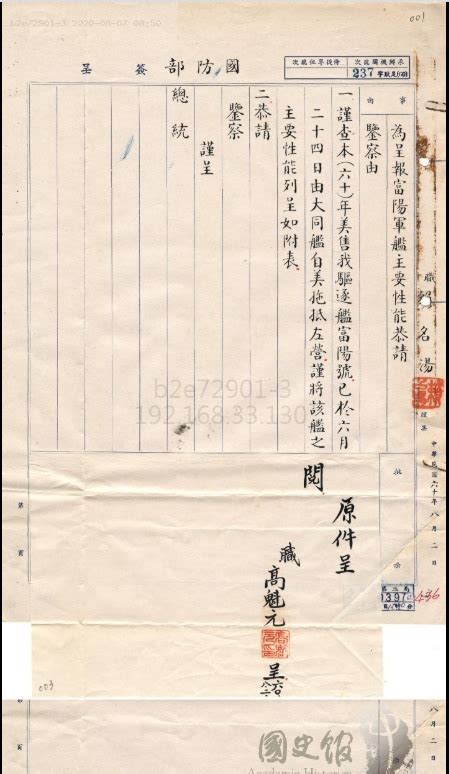 001
b2e72901-3 2020-08-03 08:50
國防部簽呈
237
事由
為呈報富陽軍艦主要性能恭請
鑒察由
職 賴名湯
謹呈
中華民國六十年八月二日
一謹查本(六十)年美售我驅逐艦富陽號已於六月
二十四日由大同艦自美拖抵左營謹將該艦之
主要性能列呈如附表
二恭請
鑒察
謹呈
總統
b2e72901-3
192.168.33.130
批示
原件呈
閱
職高魁元
呈
003
國史館